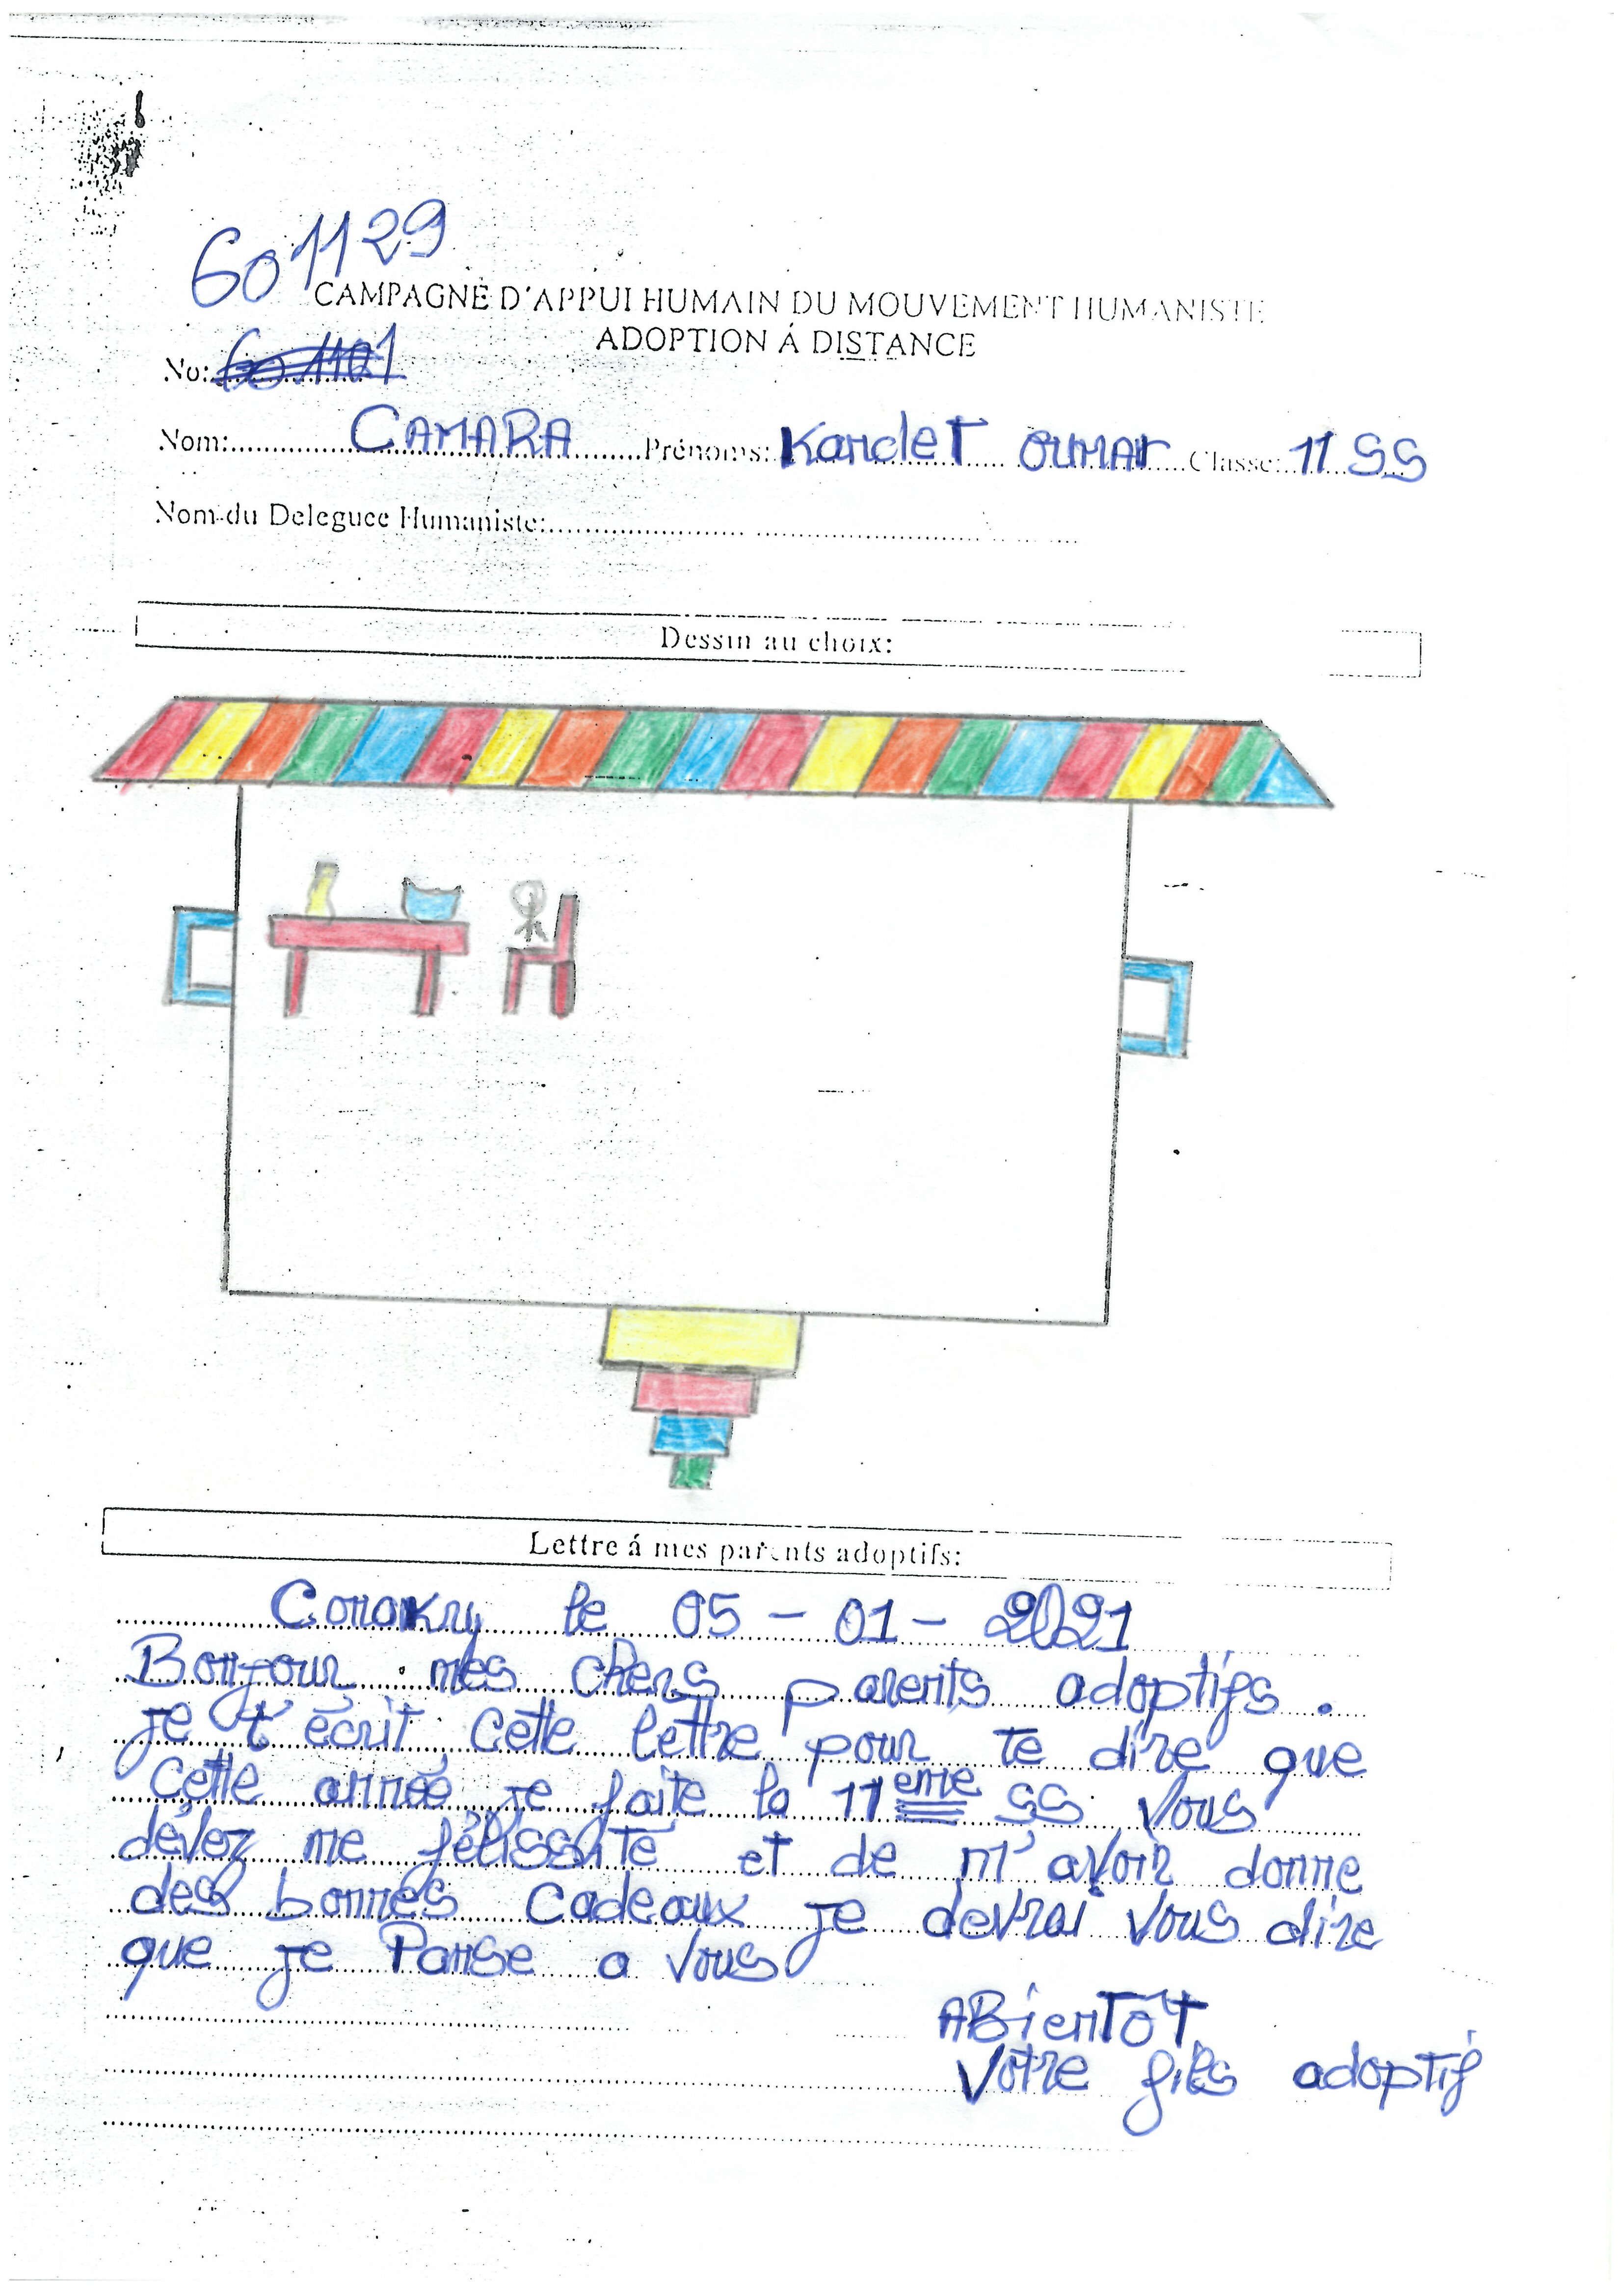 601129
CAMPAGNE D'APPUI HUMAIN DU MOUVEMENT HUMANISTE
ADOPTION Á DISTANCE
No: 601101
Nom: CAMARA Prénoms: Kandet OUMAr Classe: 11 SS
Nom du Deleguee Humaniste:
Dessin au choix:
Lettre á mes parents adoptifs:
Conakry le 05 - 01 - 2021
Bonjour mes chers parents adoptifs.
je t'écrit cette lettre pour te dire que
cette année je faite la 11eme SS vous
dévez me félissité et de m'avoir donne
des bonnes cadeaux je devrai vous dire
que je Panse a vous
ABientôt
Votre fils adoptif